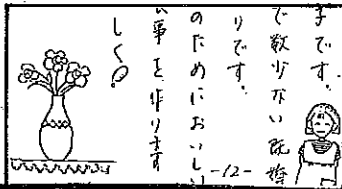 まです。
で数少ない既婚
りです。
のためにおいしい
事を作ります
しく
-12-